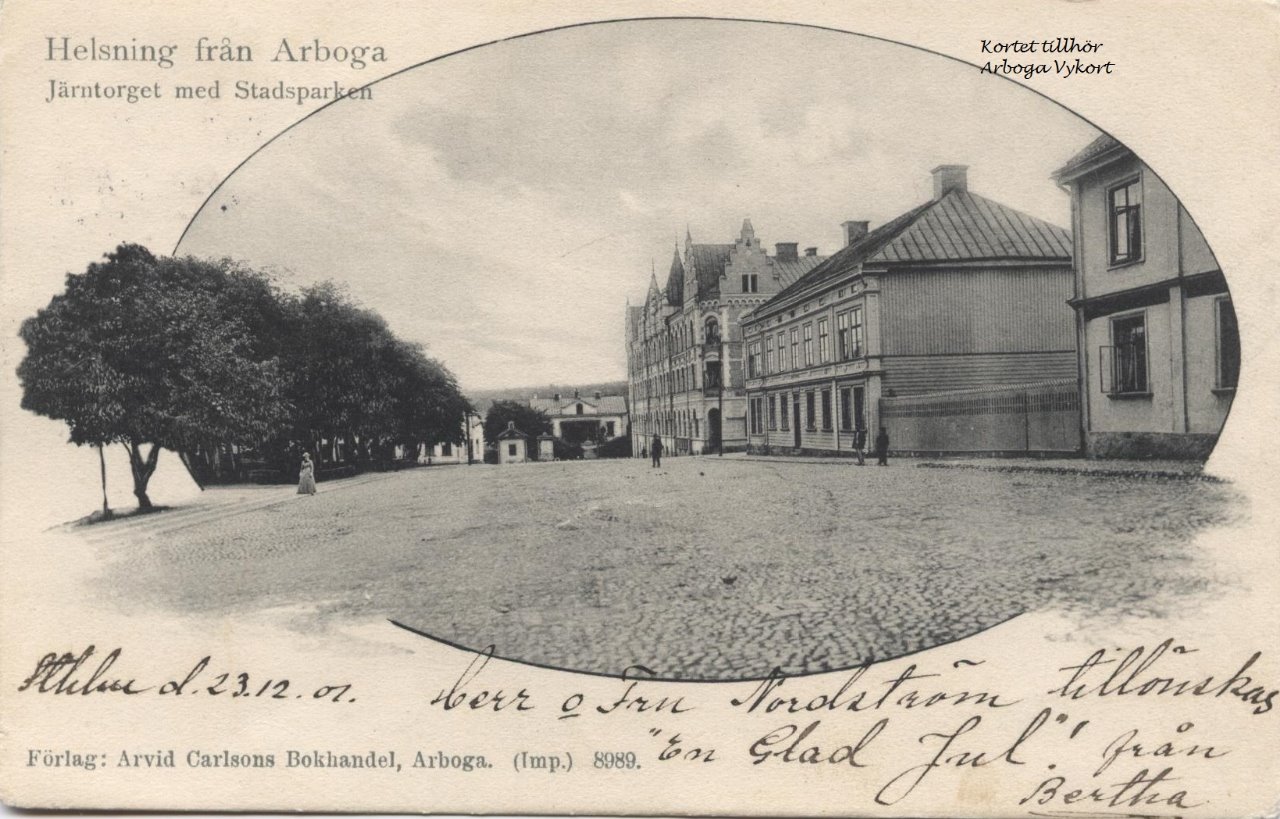 Helsning från Arboga
Järntorget med Stadsparken
Kortet tillhör
Arboga Vykort
Sthlm d. 23.12.01.
Herr o Fru Nordström tillönskas
"En Glad Jul"! från
Bertha
Förlag: Arvid Carlsons Bokhandel, Arboga. (Imp.) 8989.